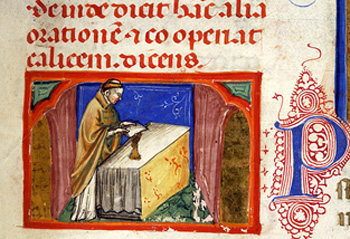 deinde dicit hãc alia
orationẽ ⁊ co operiat
calicem dicens.
P